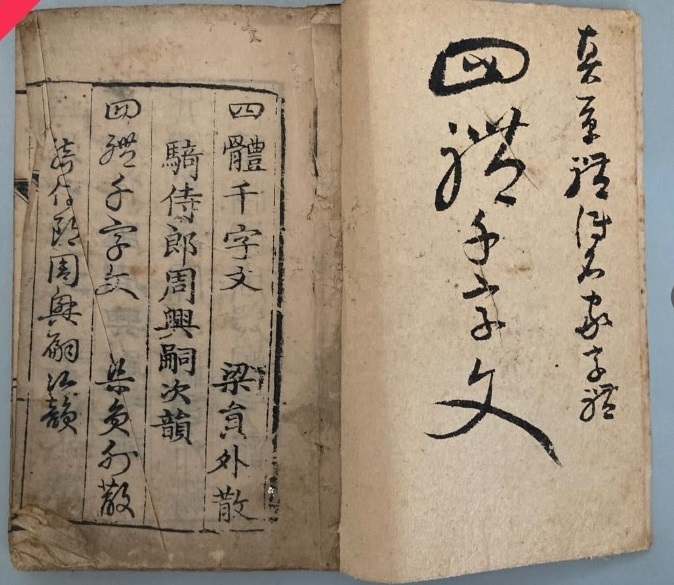 真草體得名家字體
四體千字文
四體千字文 梁員外散
騎侍郎周興嗣次韻
四體千字文 梁員外散
騎侍郎周興嗣次韻